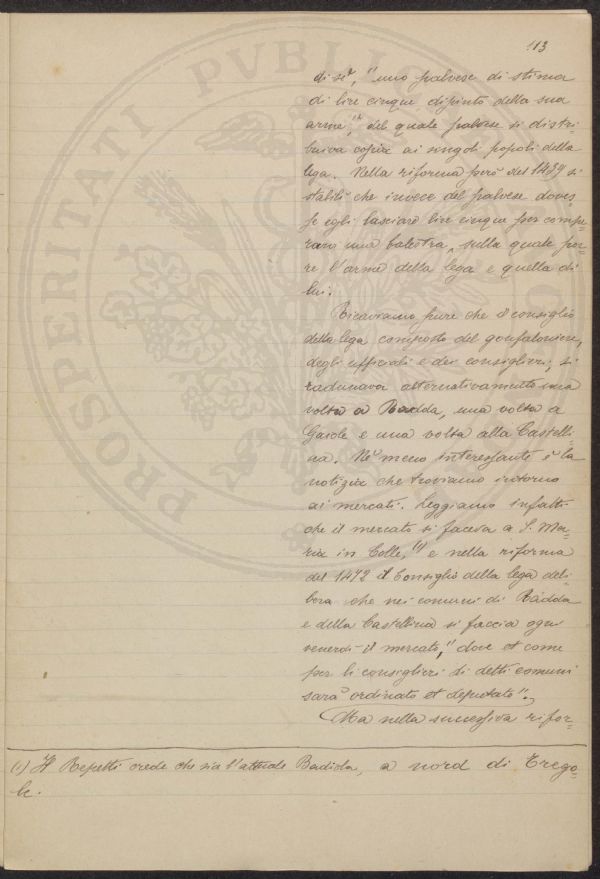 113
di sè, "uno palvese di stima
di lire cinque dipinto della sua
arme," del quale palvese si distri-
buiva copia ai singoli popoli della
lega. Nella riforma però del 1439 si
stabilì che invece del palvese doves-
se egli lasciare lire cinque per compe-
rare una balestra, sulla quale por-
re l'arme della lega e quella di
lui.
Ricaviamo pure che il consiglio
della lega composto del gonfaloniere,
degli ufficiali e dei consiglieri, si
radunava alternativamente una
volta a Radda, una volta a
Gaiole e una volta alla Castelli-
na. Nè meno interessante è la
notizia che troviamo intorno
ai mercati. Leggiamo infatti
che il mercato si faceva a S. Ma-
ria in Colle, (1) e nella riforma
del 1472 il Consiglio della lega deli-
bera che nei comuni di Radda
e della Castellina si faccia ogni
venerdì il mercato, "dove et come
per li consiglieri di detti comuni
sarà ordinato et deputato".
Ma nella successiva rifor-
(1) Il Repetti crede che sia l'attuale Badiola, a nord di Trego-
le.
PROSPERITATI PVBLICAE